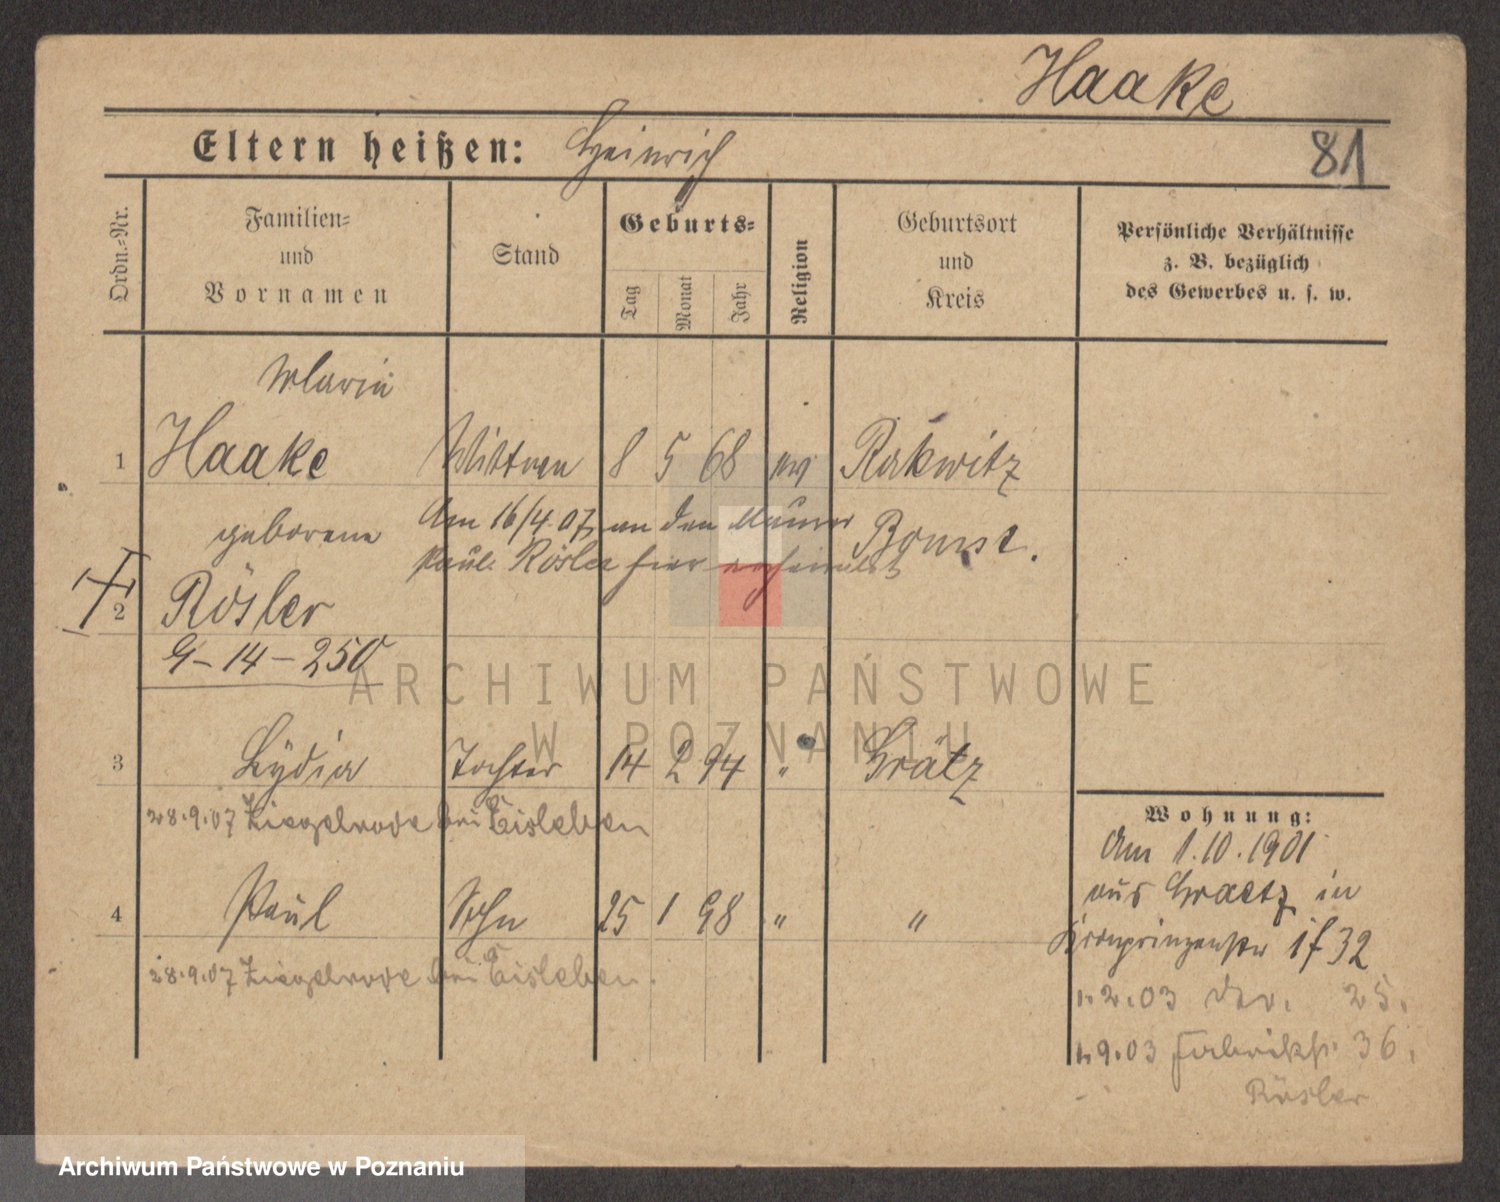 Haake
Eltern heißen: Heinrich
81
Ordn.-Nr.
Familien-
und
Vornamen
Stand
Geburts-
Tag
Monat
Jahr
Religion
Geburtsort
und
Kreis
Persönliche Verhältnisse
z. B. bezüglich
des Gewerbes u. s. w.
Marie
1 Haake Wittwe 8 5 68 ev Rakwitz
geborene Am 16/4.07 an den Maurer Bomst.
Paul Rösler hier verheiratet
2 Rösler
9-14-250
ARCHIWUM PAŃSTWOWE
W POZNANIU
3 Lydia Tochter 14 2 94 " Grätz
28.9.07 Ziegelrode bei Eisleben
4 Paul Sohn 25 1 98 " "
28.9.07 Ziegelrode bei Eisleben.
Wohnung:
Am 1.10.1901
aus Graetz in
Kronprinzenstr 32
1.2.03 do. 25.
1.9.03 Fabrikstr. 36.
Rösler
Archiwum Państwowe w Poznaniu